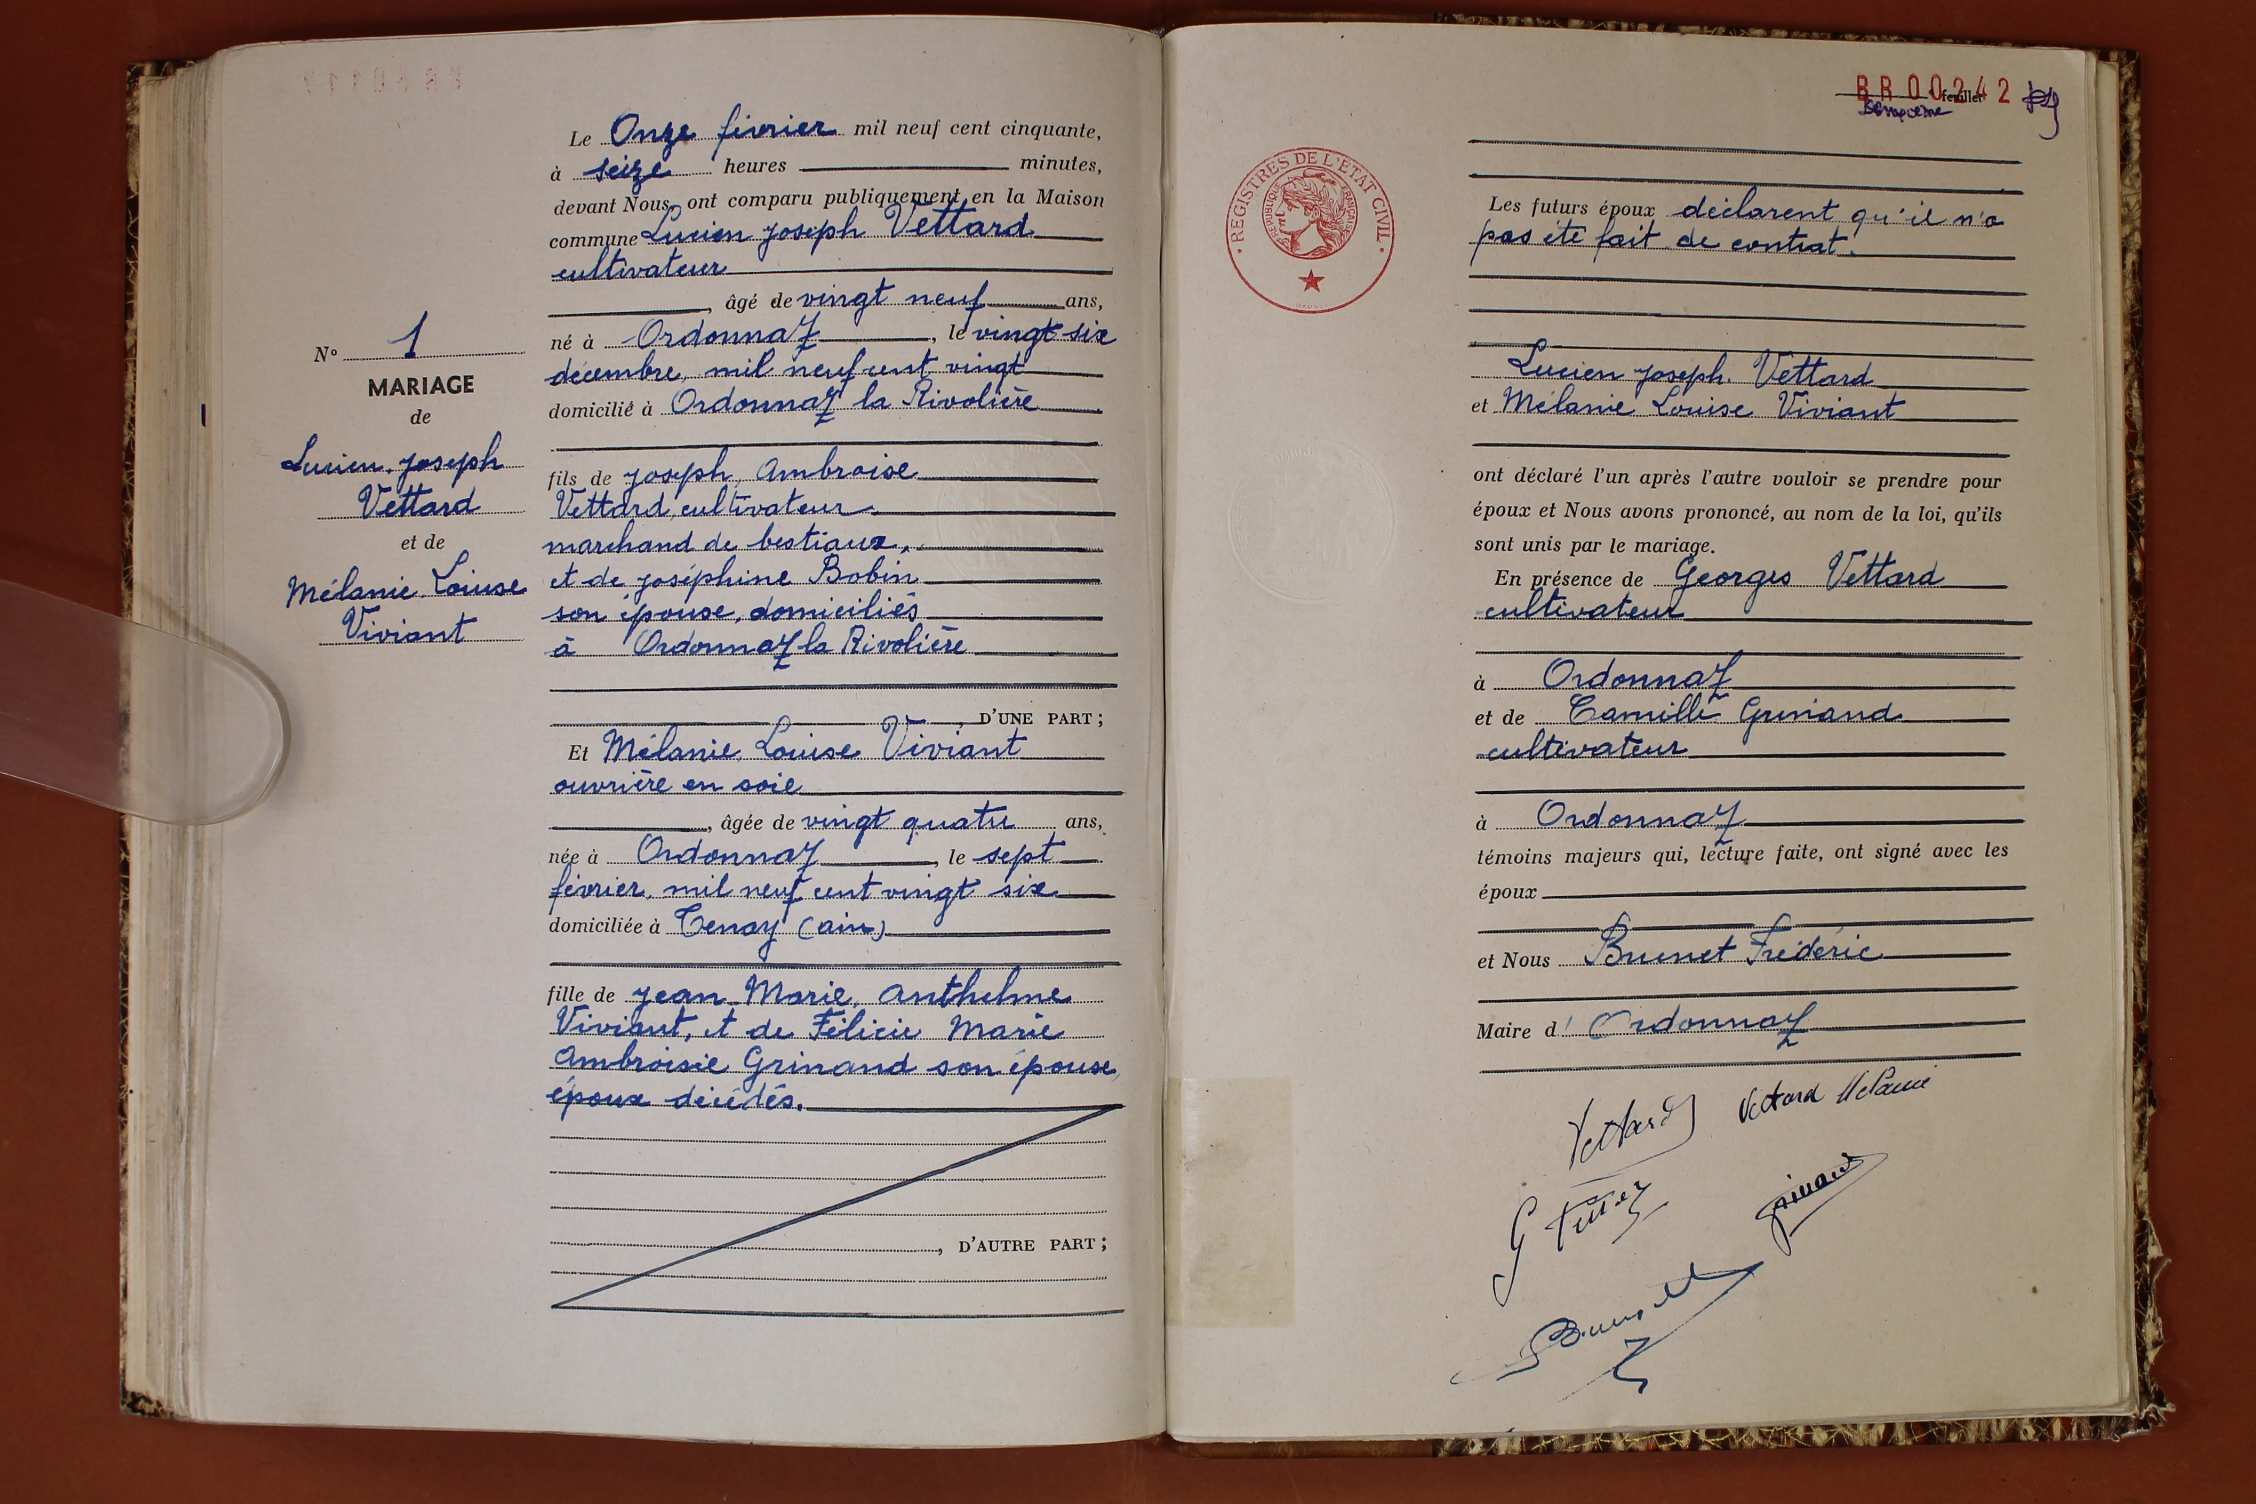 Nº 1
MARIAGE
de
Lucien Joseph
Vettard
et de
Mélanie Loiuse
Viviant
Le Onze février mil neuf cent cinquante,
à seize heures minutes,
devant Nous, ont comparu publiquement en la Maison
commune Lucien Joseph Vettard
cultivateur
, âgé de vingt neuf ans,
né à Ordonnaz, le vingt six
décembre, mil neuf cent vingt
domicilié à Ordonnaz la Rivolière
fils de Joseph, Ambroise
Vettard, cultivateur
marchand de bestiaux,
et de Joséphine Bobin
son épouse, domiciliés
à Ordonnaz la Rivolière
, D'UNE PART;
Et Mélanie Louise Viviant
ouvrière en soie
, âgée de vingt quatre ans,
née à Ordonnaz, le sept
février, mil neuf cent vingt six
domiciliée à Tenay (ain)
fille de Jean Marie, Anthelme
Viviant, et de Félicie Marie
Ambroisie Grinand son épouse,
époux décédés.
, D'AUTRE PART;
BR00242
feuillet
REGISTRES DE L'ETAT CIVIL
REPUBLIQUE FRANÇAISE
Les futurs époux déclarent qu'il n'a
pas été fait de contrat.
Lucien Joseph. Vettard
et Mélanie Louise Viviant
ont déclaré l'un après l'autre vouloir se prendre pour
époux et Nous avons prononcé, au nom de la loi, qu'ils
sont unis par le mariage.
En présence de Georges Vettard
cultivateur
à Ordonnaz
et de Camille Grinand
cultivateur
à Ordonnaz
témoins majeurs qui, lecture faite, ont signé avec les
époux
et Nous Brunet Frédéric
Maire d' Ordonnaz
Vettard Vettard Mélanie
G
Grinand
Brunet